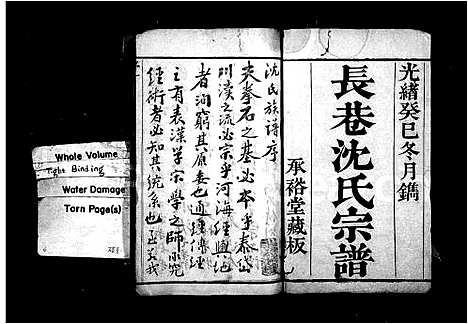 光緒癸巳冬月鐫
長巷沈氏宗譜
承裕堂藏板
沈氏族譜序
夫拳石之基必本乎泰岱
川瀆之流必宗乎河海經輿地
者洵窮其原委也通經傳經
主有表漢學宗學之師承究
經術者必知其統系也孟
Whole Volume
Tight Binding
Water Damage
Torn Page(s)